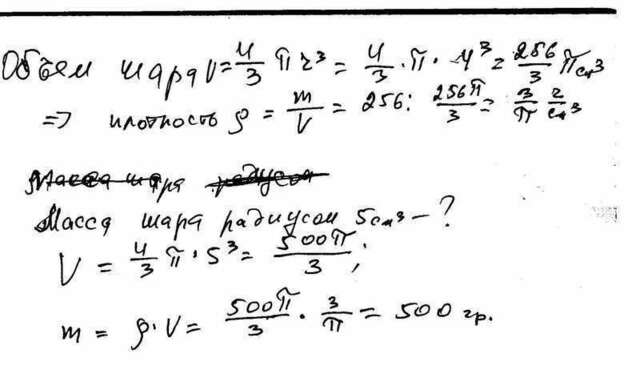 Объем шара V = 4/3 π r³ = 4/3 · π · 4³ = 256/3 π см³
=> плотность ρ = m/V = 256 : 256π/3 = 3/π г/см³
Масса шара радиусом
Масса шара радиусом 5 см³ – ?
V = 4/3 π · 5³ = 500π/3 ;
m = ρ · V = 500π/3 · 3/π = 500 гр.